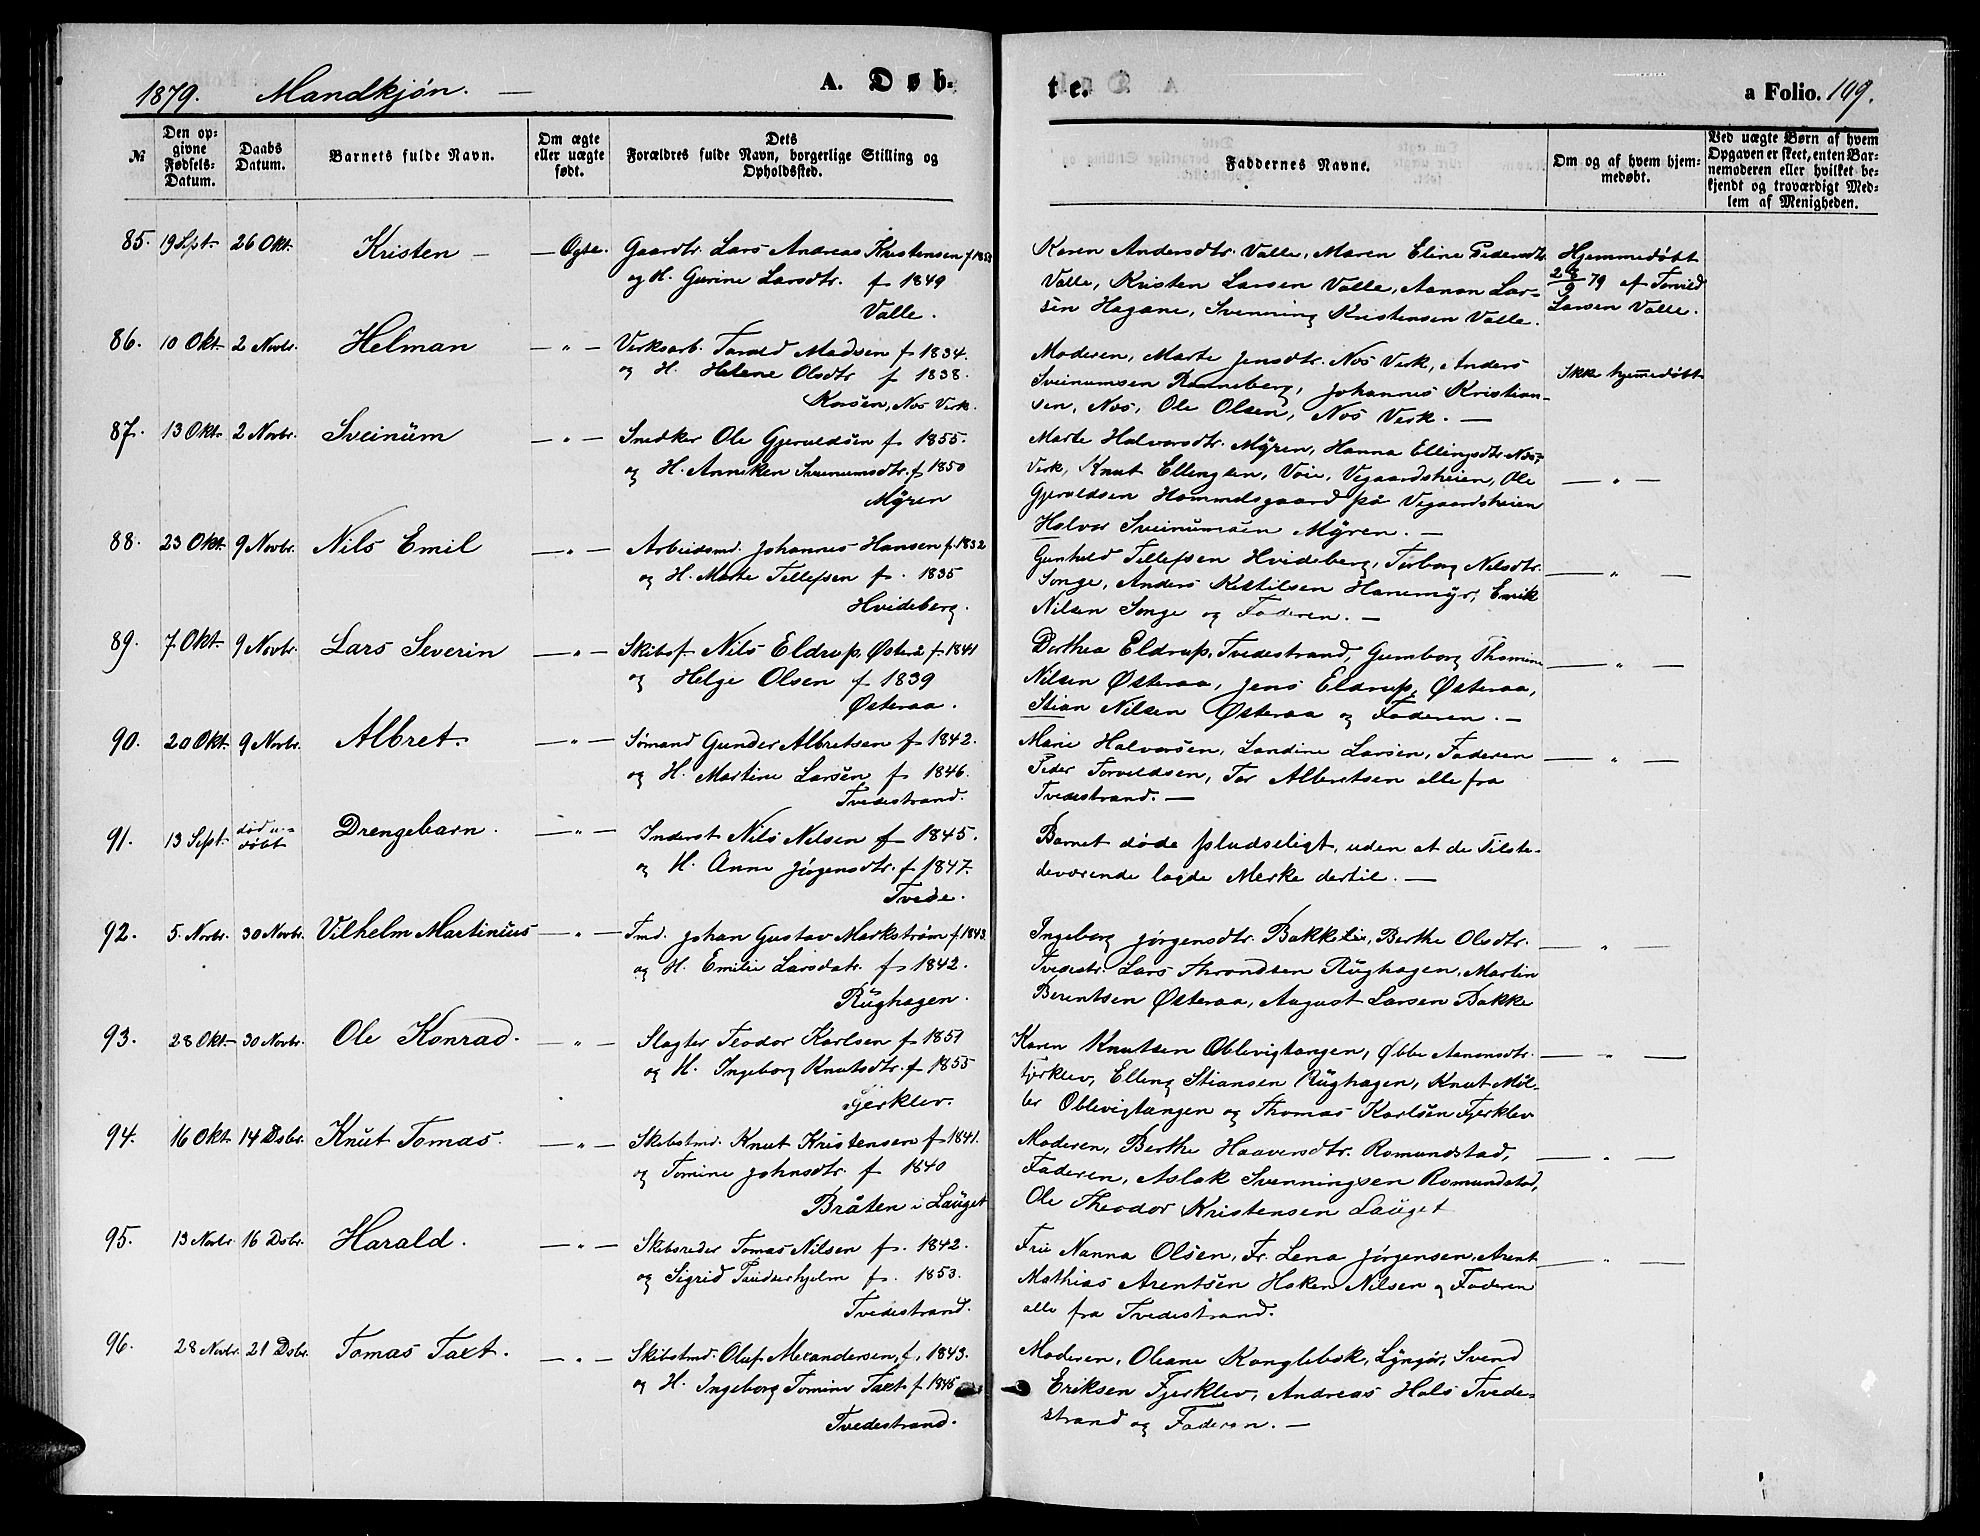 1879. Mandkjøn. — A. Døb-
te. a Folio. 109.
№
Den opgivne Fødsels-Datum.
Daabs Datum.
Barnets fulde Navn.
Om ægte eller uægte født.
Dets Forældres fulde Navn, borgerlige Stilling og Opholdssted.
Faddernes Navne.
Om og af hvem hjemmedøbt.
Ved uægte Børn af hvem Opgaven er skeet, enten Barnemoderen eller hvilket bekjendt og troværdigt Medlem af Menigheden.
85. 19 Spt. 26 Okt. Kristen — Ægte. Gaardbr. Lars Andreas Kristensen f 1853
og H. Gurine Larsdtr. f 1849
Valle.
Karen Andersdtr. Valle, Maren Eline Pedersdtr.
Valle, Kristen Larsen Valle, Aanon Lar-
sen Hagane, Svenning Kristensen Valle.
Hjemmedøbt
79 af Torvild
Larsen Valle.
86. 10 Okt. 2 Novbr. Helman — " — Verksarb. Madsen f 1834.
og H. Helene Olsdtr f 1838.
Nes Verk.
Moderen, Marte Jensdtr. Nes Verk, Anders
Sveinumsen Ranneberg, Johannes Kristian-
sen, Nes, Ole Olsen, Nes Verk. —
Ikke hjemmedøbt
87. 13 Okt. 2 Novbr. Sveinŭm — " — Snedker Ole Gjeruldsen f 1855.
og H. Anniken Sveinumsdtr. f 1850
Mÿren
Marte Halvorsdtr. Mÿren, Hanna Ellingsdtr. Nes-
Verk, Knut Ellingsen, Voie, Vegaardsheien, Ole
Gjeruldsen Hommelsgaard på Vegaardsheien
Halvor Sveinumsen Mÿren. —
— " —
88. 23 Okt. 9 Novbr. Nils Emil — " — Arbeidsmd. Johannes Hansen f. 1832
og H. Marte Tellefsen f. 1835
Hvideberg.
Gunhild Tellefsen Hvideberg, Torborg Nilsdtr.
Songe, Anders Kettilsen Hanemyr, Emik
Nilsen Songe og Faderen. —
— " —
89. 7 Okt. 9 Novbr. Lars Severin — " — Skibsf. Nils Eldrup, Østeraa f 1841
og Helge Olsen f 1839
Østeraa.
Dorthea Eldrup, Tvedestrand, Gumborg Thomine
Nilsen Østeraa, Jens Eldrup, Østeraa,
Stian Nilsen Østeraa og Faderen. —
— " —
90. 20 Okt. 9 Novbr. Albret. — " — Sømand Gunder Albretsen f 1842.
og H. Martine Larsen f 1846.
Tvedestrand.
Marie Halvorsen, Landine Larsen, Faderen
Peder Torveldsen, Tor Albretsen alle fra
Tvedestrand. —
— " —
91. 13 Sept. død u-
døbt Drengebarn. — " — Inderst Nils Nilsen f 1845.
og H. Anne Jørgensdtr. f 1847.
Tvede.
Barnet døde pludseligt, uden at de Tilste-
deværende lagde Merke dertil. —
92. 5. Novbr. 30 Novbr. Vilhelm Martinius — " — Tmd. Johan Gustav Markstrøm f. 1843.
og H. Emilie Larsdatr. f 1842.
Rŭghagen.
Ingeborg Jørgensdtr. Bakkelie, Berthe Olsdtr.
Tvedestr. Lars Throndsen Rŭghagen, Martin
Berentsen Østeraa, August Larsen Bakke
— " —
93. 28 Okt. 30 Novbr. Ole Konrad. — " — Slagter Teodor Karlsen f 1851
og H. Ingeborg Knutsdtr. f 1855
Fjerklev.
Karen Knutsen Oblevigtangen, Øbbe Aanonsdtr.
Fjerklev, Elling Stiansen Rŭghagen, Knut Møl-
ler Oblevigtangen og Thomas Karlsen Fjerklev
— " —
94. 16 Okt. 14 Dsbr. Knŭt Tomas. — " — Skibstmd. Knut Kristensen f 1841.
og Tomine Johnsdtr. f 1840
Bråten i Laŭget
Moderen, Berthe Haaversdtr. Romundstad,
Faderen, Aslak Svenningsen Romundstad,
Ole Theodor Kristensen Laŭget
— " —
95. 13 Novbr. 16 Dsbr. Harald. — " — Skibsreder Tomas Nilsen f. 1842.
og Sigrid f. 1853.
Tvedestrand.
Frue Nanna Olsen, Fr. Lena Jørgensen, Arent
Mathias Arentsen Haken Nilsen og Faderen
alle fra Tvedestrand.
— " —
96. 28 Novbr. 21 Dsbr. Tomas Taxt. — " — Skibstmd. Oluf Alexandersen, f. 1843.
og H. Ingeborg Tomine Taxt f 1845
Tvedestrand.
Moderen, Oleane Konglebek, Lÿngør, Svend
Eriksen Fjerklev, Andreas Hals Tvede-
strand og Faderen. —